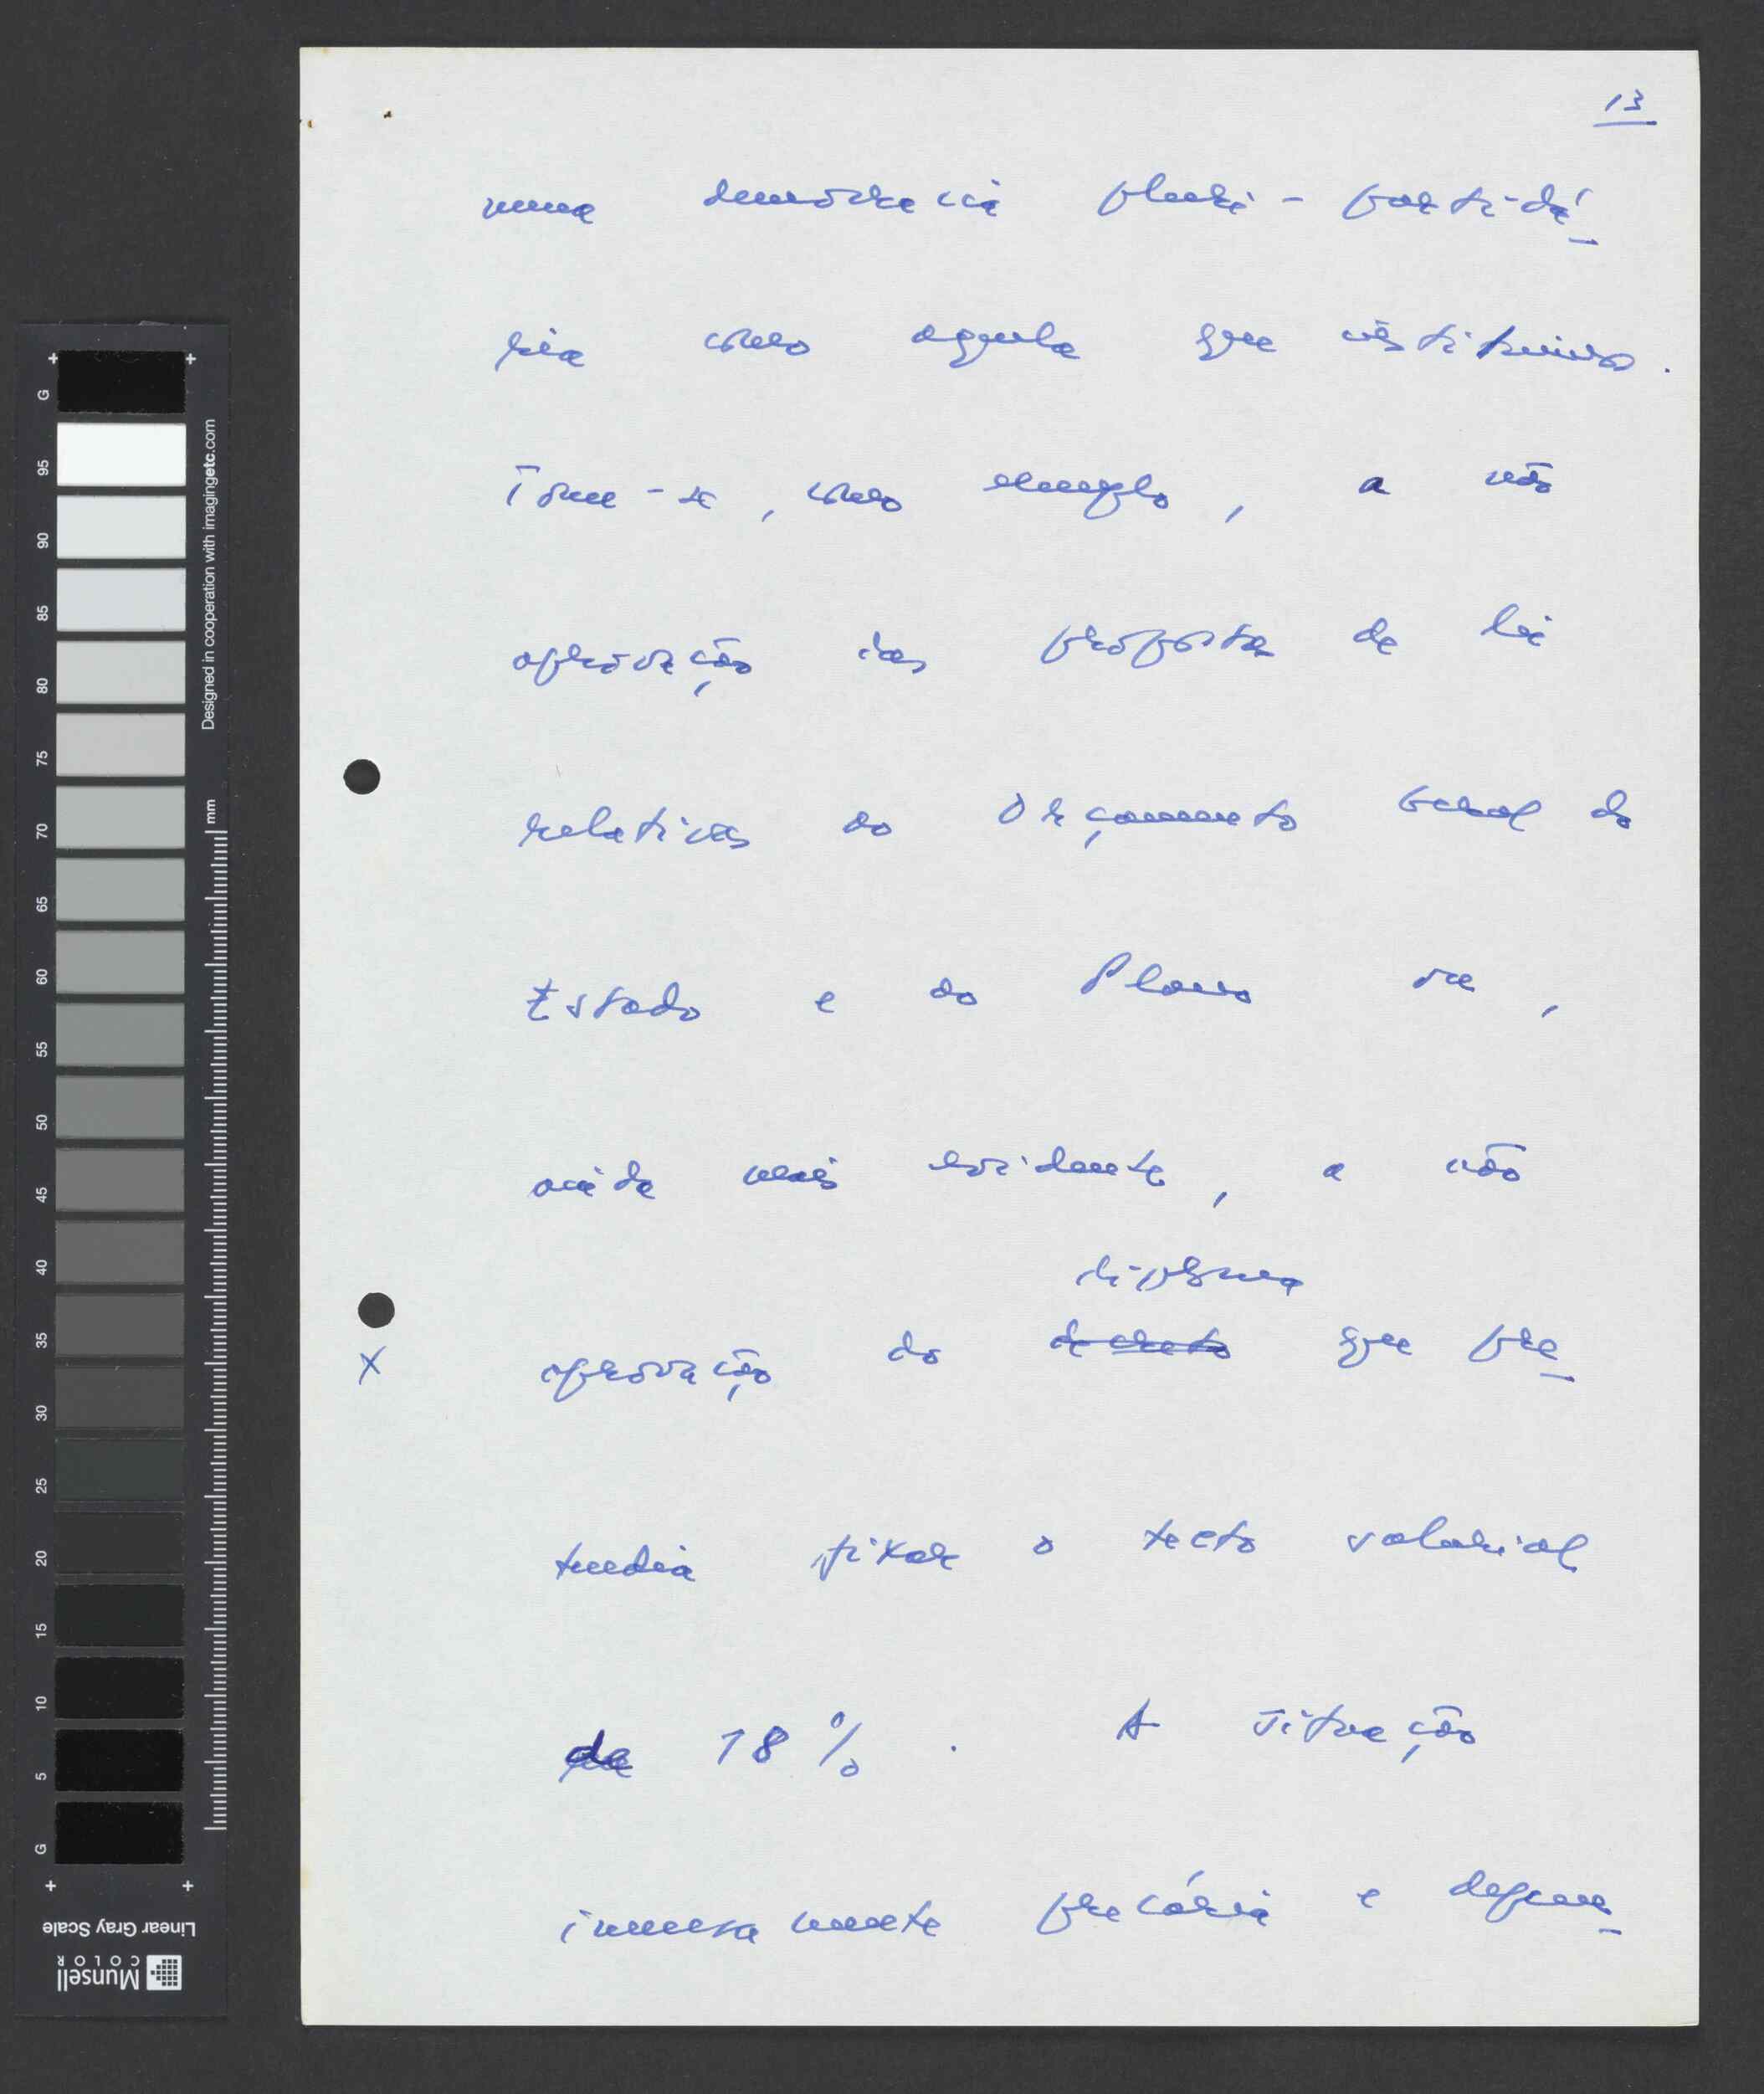 13
numa democracia pluri-partidá
ria como aquela que instituimos.
Tome-se, como exemplo, a não
aprovação das propostas de lei
relativas ao Orçamento Geral do
Estado e ao Plano ou,
ainda mais evidente, a não
diploma
aprovação do decreto que pre
X
tendia fixar o tecto salarial
de 18%. A situação
imensamente precária e
G
95
90
85
80
75
70
65
60
55
50
45
40
35
30
25
20
15
10
5
G
Designed in cooperation with imagingetc.com
mm
Linear Gray Scale
Munsell
COLOR